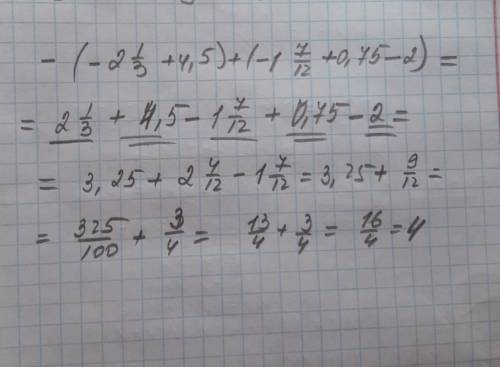 - (-2 1/3 + 4,5) + (-1 7/12 + 0,75 - 2) =
= 2 1/3 + 4,5 - 1 7/12 + 0,75 - 2 =
= 3,25 + 2 4/12 - 1 7/12 = 3,25 + 9/12 =
= 325/100 + 3/4 = 13/4 + 3/4 = 16/4 = 4